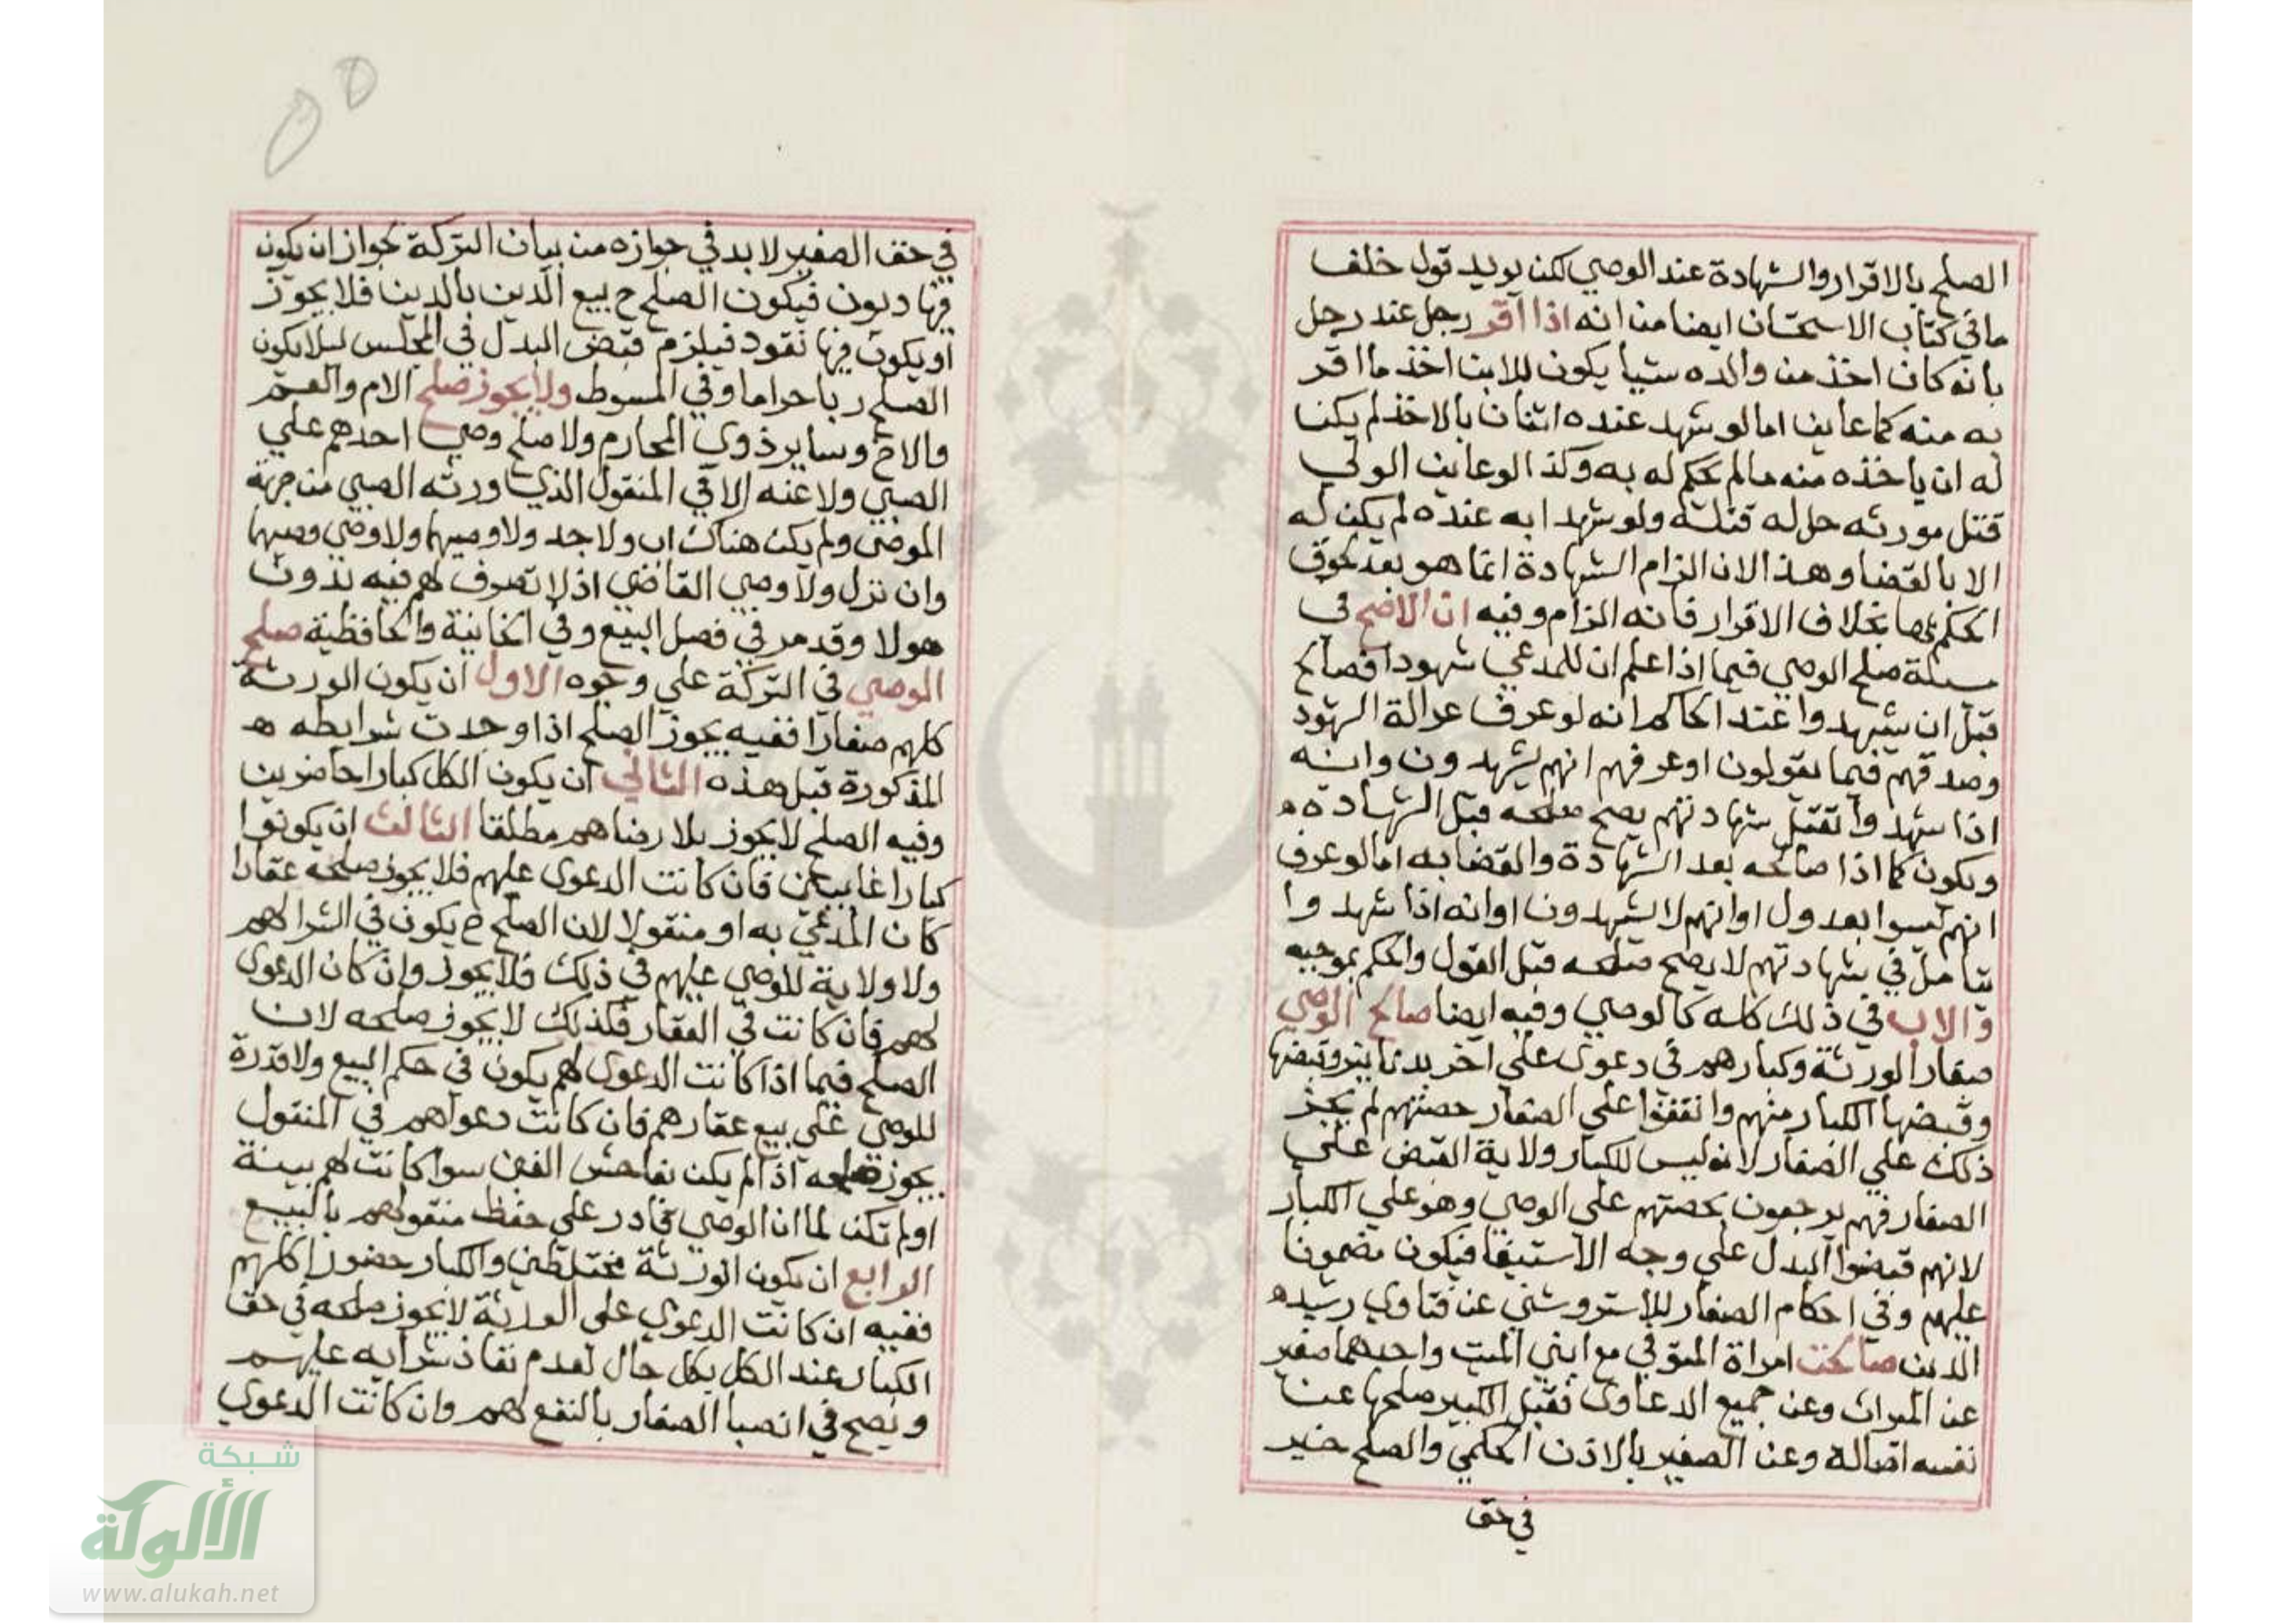 الصلح بالاقرار والشهادة عند الوصي لكن يويد قول خلف
ما في كتاب الاستحسان ايضا من انه اذا اقر رجل عند رجل
بانه كان اخذ من والده شيا يكون للابن اخذ ما اقر
به منه كما عاين اما لو شهد عنده اثنان بالاخذ لم يكن
له ان ياخذه منه ما لم يحكم له به وكذا لو عاين الولي
قتل مورثه حل له قتله ولو شهدا به عنده لم يكن له
الا بالقضا وهذا لان الزام الشهادة انما هو بعد لحوق
الحكم بها بخلاف الاقرار فانه الزام وفيه ان الاصح في
مسيلة صلح الوصي فيما اذا علم ان للمدعي شهودا فصالح
قبل ان يشهدوا عند الحاكم انه لو عرف عدالة الشهود
وصدقهم فيما يقولون او عرفهم انهم يشهدون وانه
اذا شهدوا تقبل شهادتهم يصح صلحه قبل الشهادة
ويكون كما اذا صالحه بعد الشهادة والقضا به اما لو عرف
انهم ليسوا بعدول او انهم لا يشهدون او انه اذا شهدوا
يتامل في شهادتهم لا يصح صلحه قبل القول والحكم بموجبه
والاب في ذلك كله كالوصي وفيه ايضا صالح الوصي
صغار الورثة وكبارهم في دعوى علي اخر بدنانير وقبضها
وقبضها الكبار منهم وانفقوا علي الصغار حصتهم لم يجز
ذلك علي الصغار لانه ليس للكبار ولاية القبض علي
الصغار فهم يرجعون بحصتهم علي الوصي وهو علي الكبار
لانهم قبضوا البدل علي وجه الاستيفا فيكون مضمونا
عليهم وفي احكام الصغار للاستروشني عن فتاوي رشيد
الدين صالحت امراة المتوفي مع ابني الميت واحدهما صغير
عن الميراث وعن جميع الدعاوى فقبل الكبير صلحها عن
نفسه اصالة وعن الصغير بالاذن الحكمي والصلح خير
في حق
في حق الصغير لا بد في جوازه من بيان التركة لجواز ان يكون
فيها ديون فيكون الصلح ح بيع الدين بالدين فلا يجوز
او يكون فيها نقود فيلزم قبض البدل في المجلس ليلا يكون
الصلح ربا حراما وفي المبسوط ولا يجوز صلح الام والعم
والاخ وساير ذوي المحارم ولا صلح وصي احدهم علي
الصبي ولا عنه الا في المنقول الذي ورثه الصبي من جهة
الموصى ولم يكن هناك اب ولا جد ولا وصيهما ولا وصي وصيهما
وان نزل ولا وصي القاضي اذ لا تصرف لهم فيه بدون
هولا وقد مر في فصل البيع وفي الخانية والحافظية صلح
الوصي في التركة علي وجوه الاول ان يكون الورثة
كلهم صغارا ففيه يجوز الصلح اذا وجدت شرايطه
المذكورة قبل هذه الثاني ان يكون الكل كبارا حاضرين
وفيه الصلح لا يجوز بلا رضاهم مطلقا الثالث ان يكونوا
كبارا غايبين فان كانت الدعوى عليهم فلا يجوز صلحه عقارا
كان المدعي به او منقولا لان الصلح ح يكون في الشرا لهم
ولا ولاية للوصي عليهم في ذلك فلا يجوز وان كان الدعوى
لهم فان كانت في العقار فكذلك لا يجوز صلحه لان
الصلح فيما اذا كانت الدعوى لهم يكون في حكم البيع ولا قدرة
للوصي علي بيع عقارهم فان كانت دعواهم في المنقول
يجوز صلحه اذا لم يكن بفاحش الغبن سوا كانت لهم بينة
او لم تكن لما ان الوصي قادر علي حفظ منقولهم بالبيع
الرابع ان يكون الورثة مختلطين والكبار حضورا كلهم
ففيه ان كانت الدعوي علي الورثة لا يجوز صلحه في حق
الكبار عند الكل بكل حال لعدم نفاذ شرايه عليهم
ويصح في انصبا الصغار بالنفع لهم وان كانت الدعوي
شبكة
الألوكة
www.alukah.net